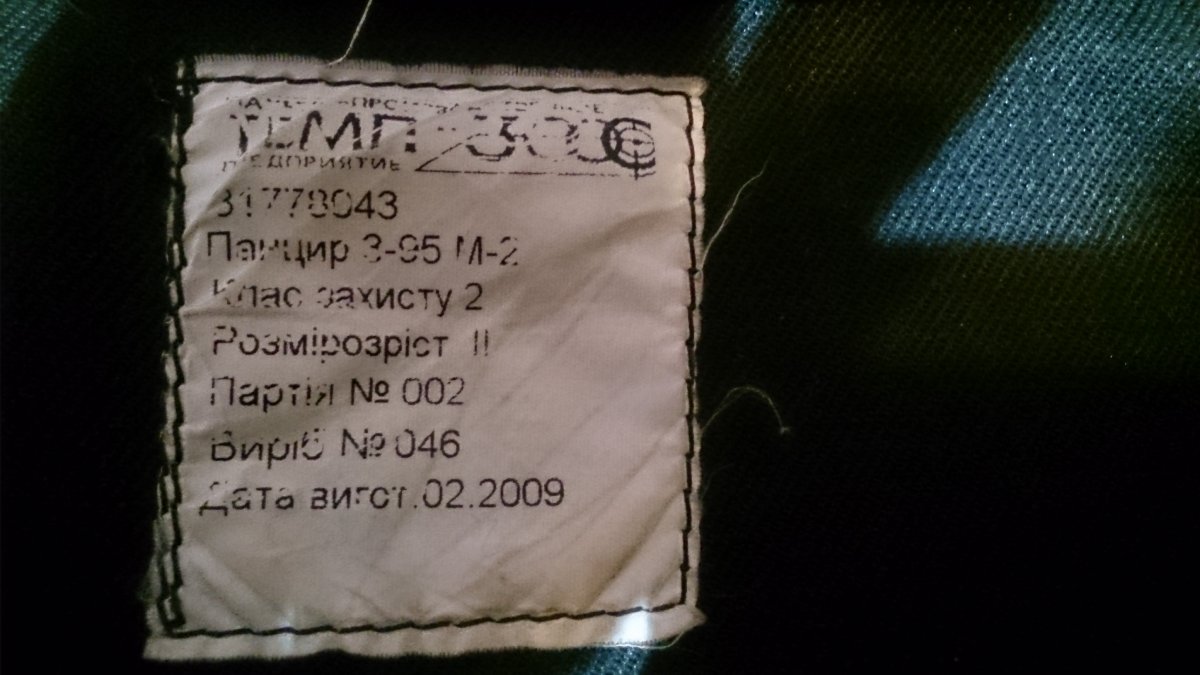 ТЕМП-3000
ПРЕДПРИЯТИЕ
31778043
Панцир 3-95 М-2
Клас захисту 2
Розмірозріст II
Партія № 002
Виріб № 046
Дата вигот.02.2009